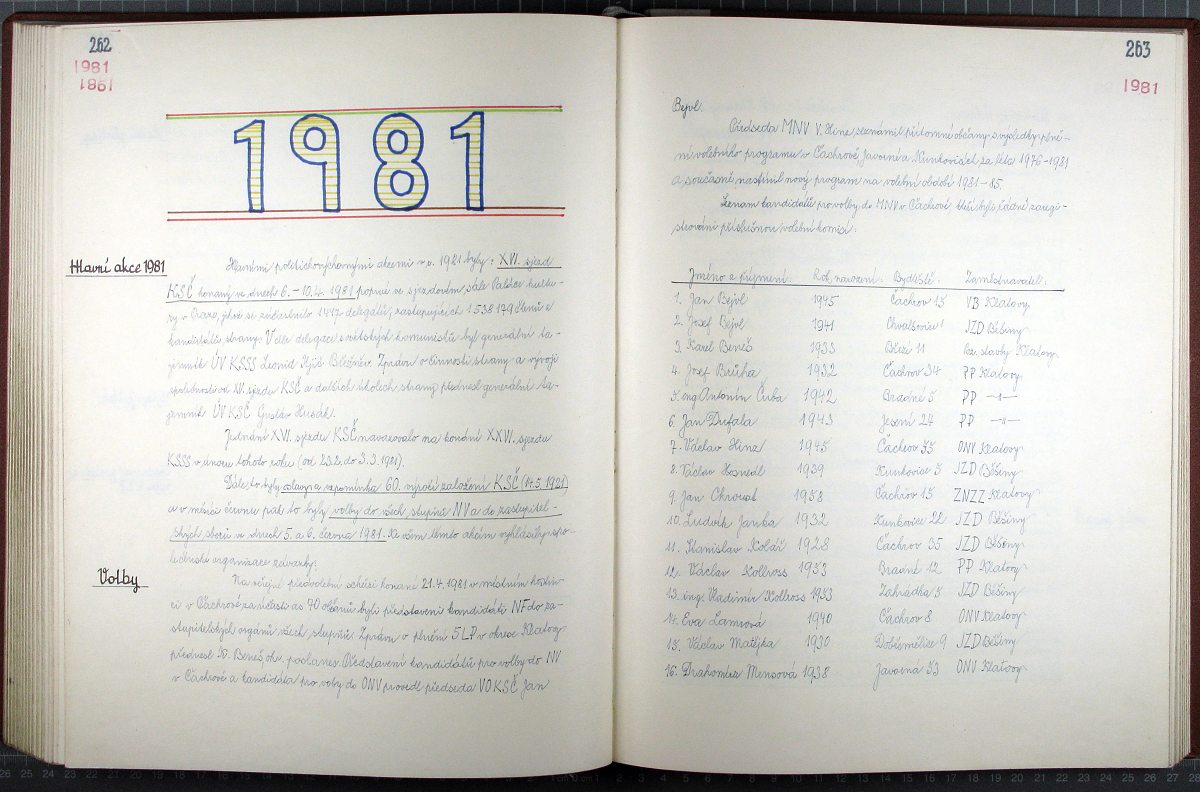 262
1981
1981
1981
Hlavní akce 1981
Hlavními politickovýchovnými akcemi v r. 1981 byly: XVI. sjezd
KSČ konaný ve dnech 6.–10.4. 1981 poprvé ve sjezdovém sále Paláce kultu-
ry v Praze, jehož se zúčastnilo 1417 delegátů, zastupujících 1 538 179 členů a
kandidátů strany. V čele delegace sovětských komunistů byl generální ta-
jemník ÚV KSSS Leonid Iljič Brežněv. Zprávu o činnosti strany a vývoji
společnosti od XV. sjezdu KSČ a dalších úkolech strany přednesl generální ta-
jemník ÚV KSČ Gustáv Husák.
Jednání XVI. sjezdu KSČ navazovalo na konání XXVI. sjezdu
KSSS v únoru tohoto roku (od 23.2. do 3.3. 1981).
Dále to byly oslavy a vzpomínka 60. výročí založení KSČ (14.5. 1921)
a v měsíci červnu pak to byly volby do všech stupňů NV a do zastupitel-
ských sborů ve dnech 5. a 6. června 1981. Ke všem těmto akcím vyhlásily spo-
lečenské organizace závazky.
Volby
Na veřejné předvolební schůzi konané 21.4. 1981 v místním hostin-
ci v Čachrově za účasti as 70 občanů byli představeni kandidáti NF do za-
stupitelských orgánů všech stupňů. Zprávu o plnění 5LP v okrese Klatovy
přednesl Beneš, ok. poslanec. Představení kandidátů pro volby do NV
v Čachrově a kandidáta pro volby do ONV provedl předseda VO KSČ Jan
263
1981
Bejvl.
Předseda MNV V. Hinz seznámil přítomné občany s výsledky plně-
ní volebního programu v Čachrově Javorné a Kunkovicích za léta 1976–1981
a současně nastínil nový program na volební období 1981–85.
Seznam kandidátů pro volby do MNV v Čachrově kteří byli řádně zaregi-
strováni příslušnou volební komisí:
Jméno a příjmení. Rok narození. Bydliště. Zaměstnavatel.
1. Jan Bejvl 1945 Čachrov 15 VB Klatovy
2. Josef Bejvl 1941 Chvalšovice 1 JZD Běšiny
3. Karel Beneš 1933 Březí 11 Poz. stavby Klatovy
4. Josef Brůha 1932 Čachrov 34 PP Klatovy
5. ing Antonín Čuba 1942 Bradné 5 PP –„–
6. Jan Dufala 1943 Jesení 24 PP –„–
7. Václav Hinz 1945 Čachrov 33 ONV Klatovy
8. Václav Hosnedl 1939 Kunkovice 3 JZD Běšiny
9. Jan Chroust 1958 Čachrov 15 ZNZZ Klatovy
10. Ludvík Janka 1932 Kunkovice 22 JZD Běšiny
11. Stanislav Kolář 1928 Čachrov 35 JZD Běšiny
12. Václav Kollross 1953 Bradné 12 PP Klatovy
13. ing. Vladimír Kollross 1953 Zahrádka 5 JZD Běšiny
14. Eva Lamiová 1940 Čachrov 8 ONV Klatovy
15. Václav Matějka 1930 Dobřemělice 9 JZD Běšiny
16. Drahomíra Mensová 1938 Javorná 33 ONV Klatovy